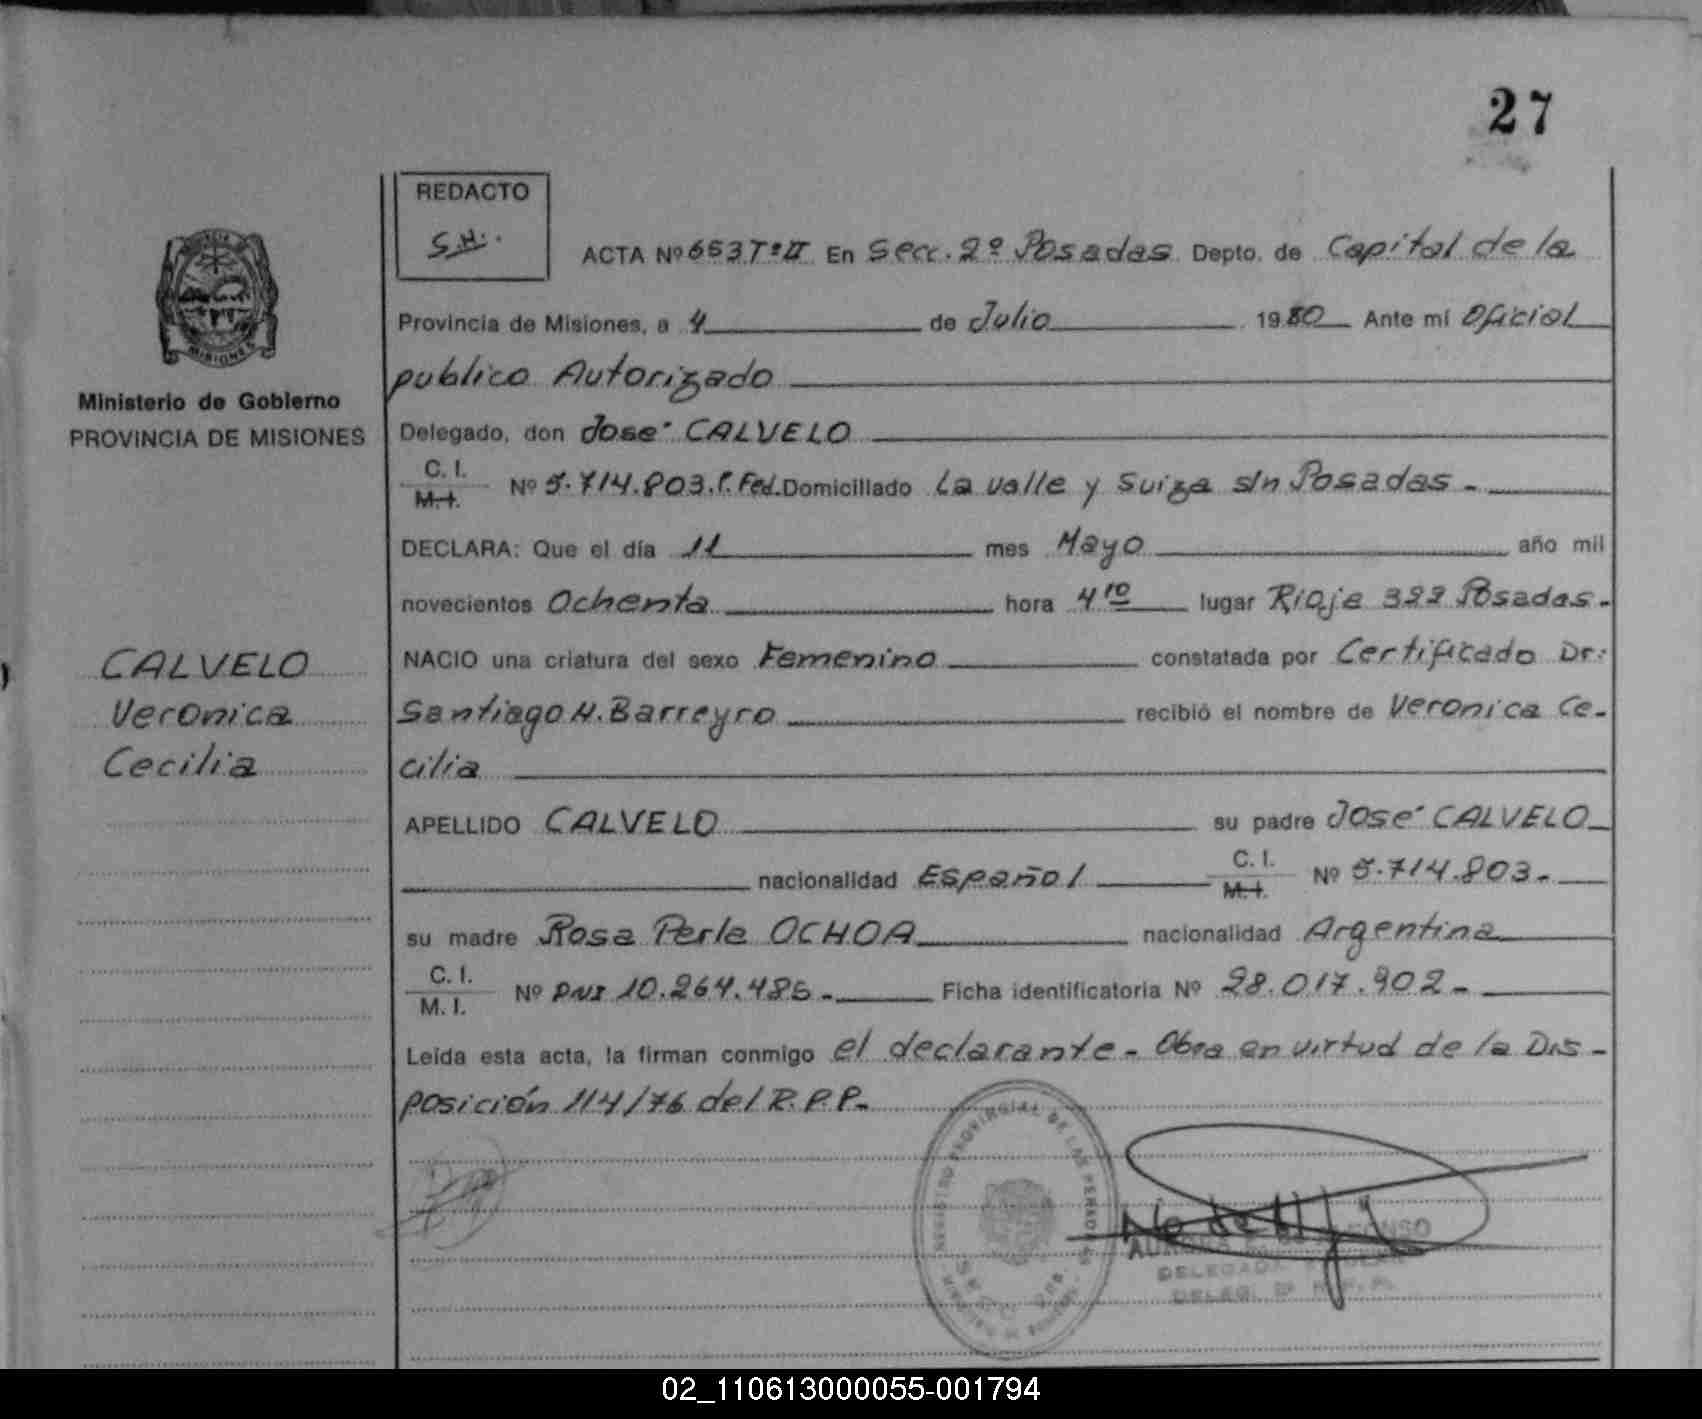 27
REDACTO
S.H.
ACTA Nº 653 Tº II En Secc. 2º Posadas Depto. de Capital de la
Provincia de Misiones, a 4 de Julio 1980 Ante mí Oficial
publico Autorizado
Ministerio de Gobierno
PROVINCIA DE MISIONES
Delegado, don José CALVELO
C. I.
M. I.
Nº 5.714.803. P. Fed. Domicillado La valle y Suiza s/n Posadas -
DECLARA: Que el día 11 mes Mayo año mil
novecientos Ochenta hora 4 10 lugar Rioja 322 Posadas.
CALVELO
Veronica
Cecilia
NACIO una criatura del sexo Femenino constatada por Certificado Dr:
Santiago H. Barreyro recibió el nombre de Veronica Ce-
cilia
APELLIDO CALVELO su padre José CALVELO
nacionalidad Español C. I. M. I. Nº 5.714.803.
su madre Rosa Perla OCHOA nacionalidad Argentina
C. I.
M. I.
Nº DNI 10.264.485. Ficha identificatoria Nº 28.017.902 -
Leída esta acta, la firman conmigo el declarante - Obra en virtud de la Dis-
posición 114/76 del R.P.P.
REGISTRO PROVINCIAL DE LAS PERSONAS
DELEGADA
DELEG. 2ª R. P. P.
MISIONES
02_110613000055-001794